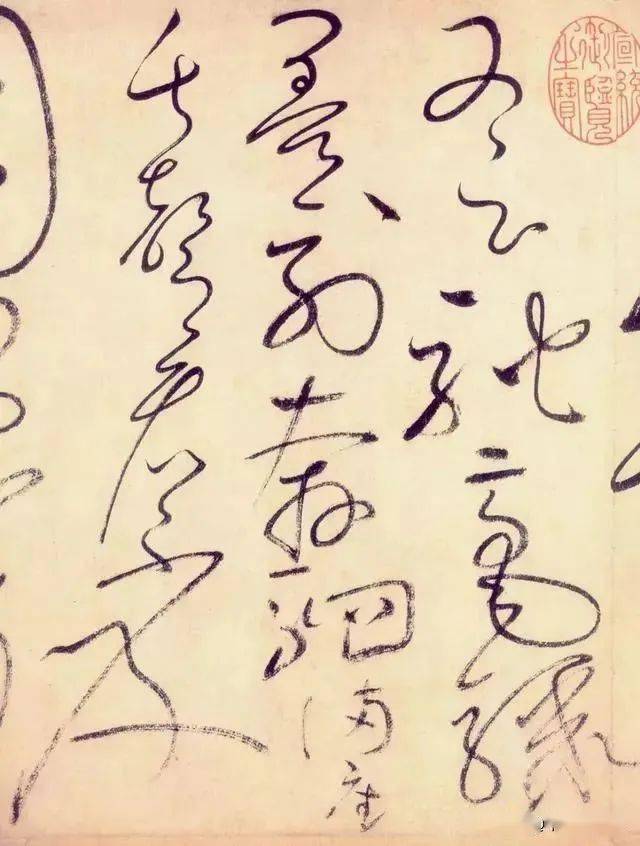 宣統御覽之寶
又云馳豪驟
墨列奔駟滿座
失聲看不及